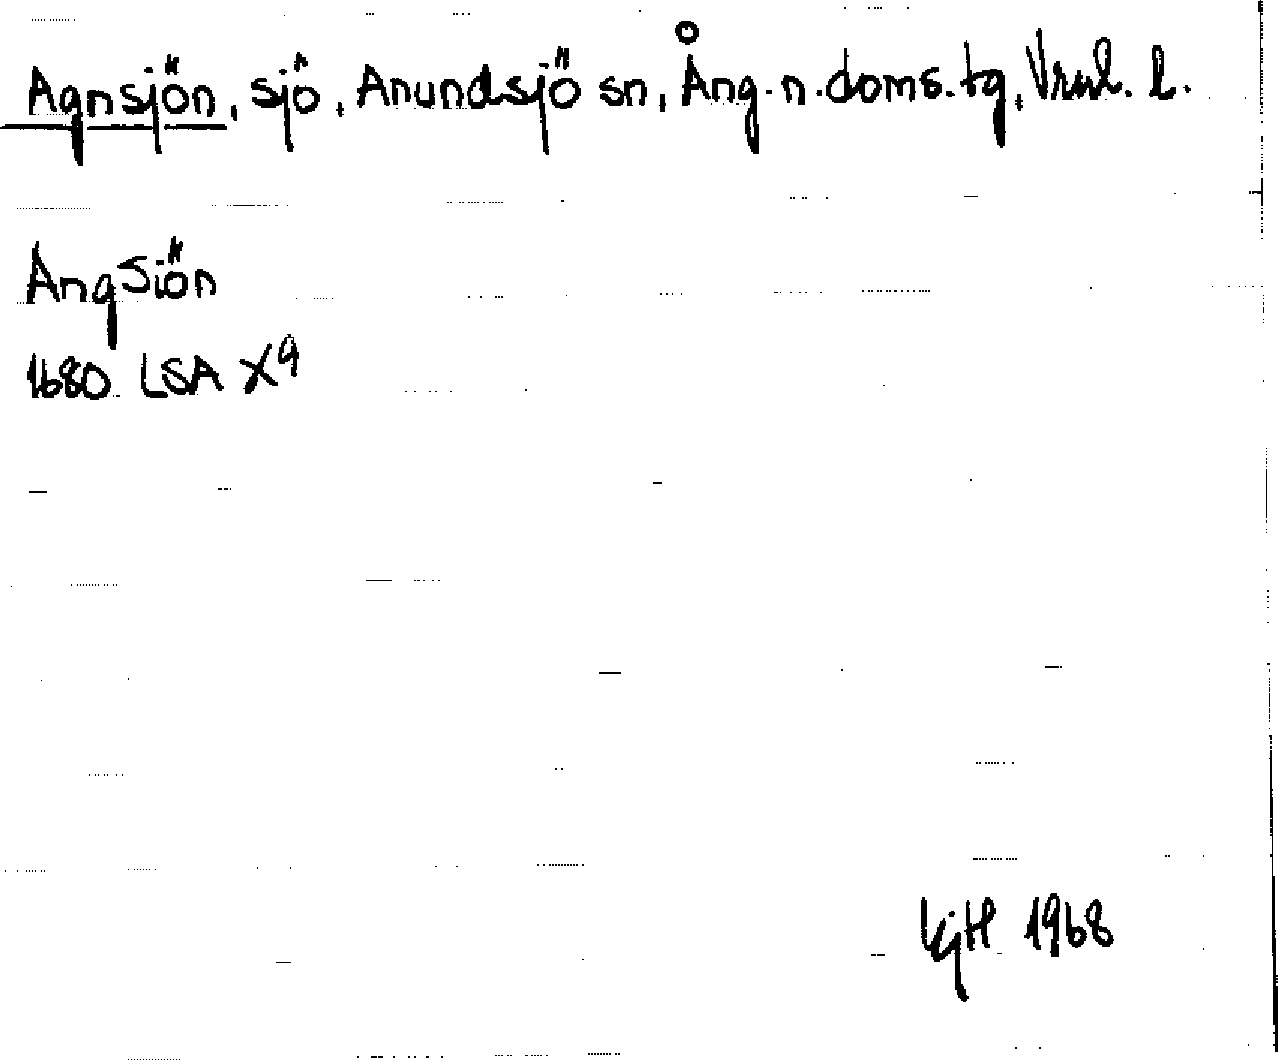 Agnsjön, sjö, Anundsjö sn, Ång. n. doms. tg, Vrnl. l.
AngSiön
1680 LSA X9
1968